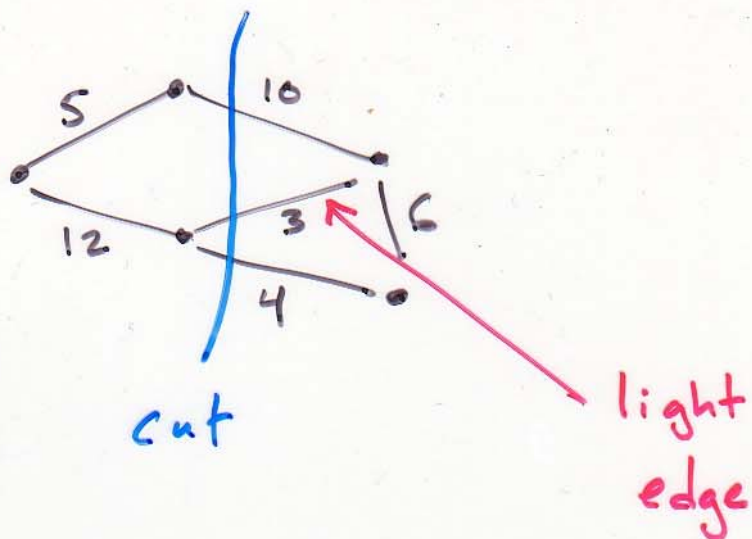 5
10
12
3
6
4
cut
light
edge